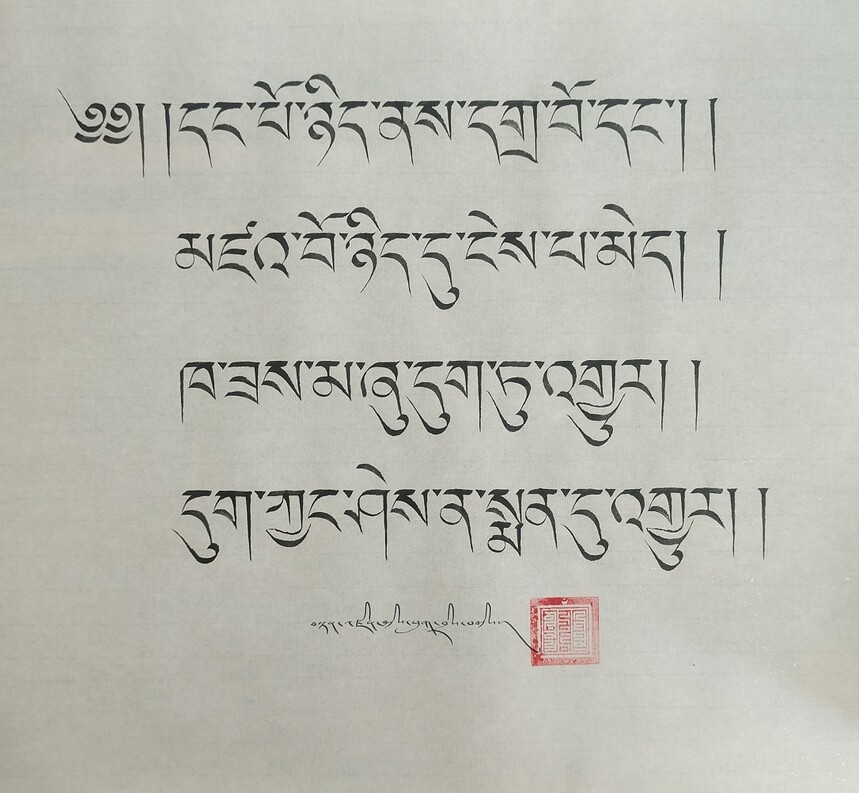 ༄༅། །དང་པོ་ཉིད་ནས་དགྲ་བོ་དང་། །
མཛའ་བོ་ཉིད་དུ་ངེས་པ་མེད། །
ཁ་ཟས་མ་ཞུ་དུག་ཏུ་འགྱུར། །
དུག་ཀྱང་ཤེས་ན་སྨན་དུ་འགྱུར། །